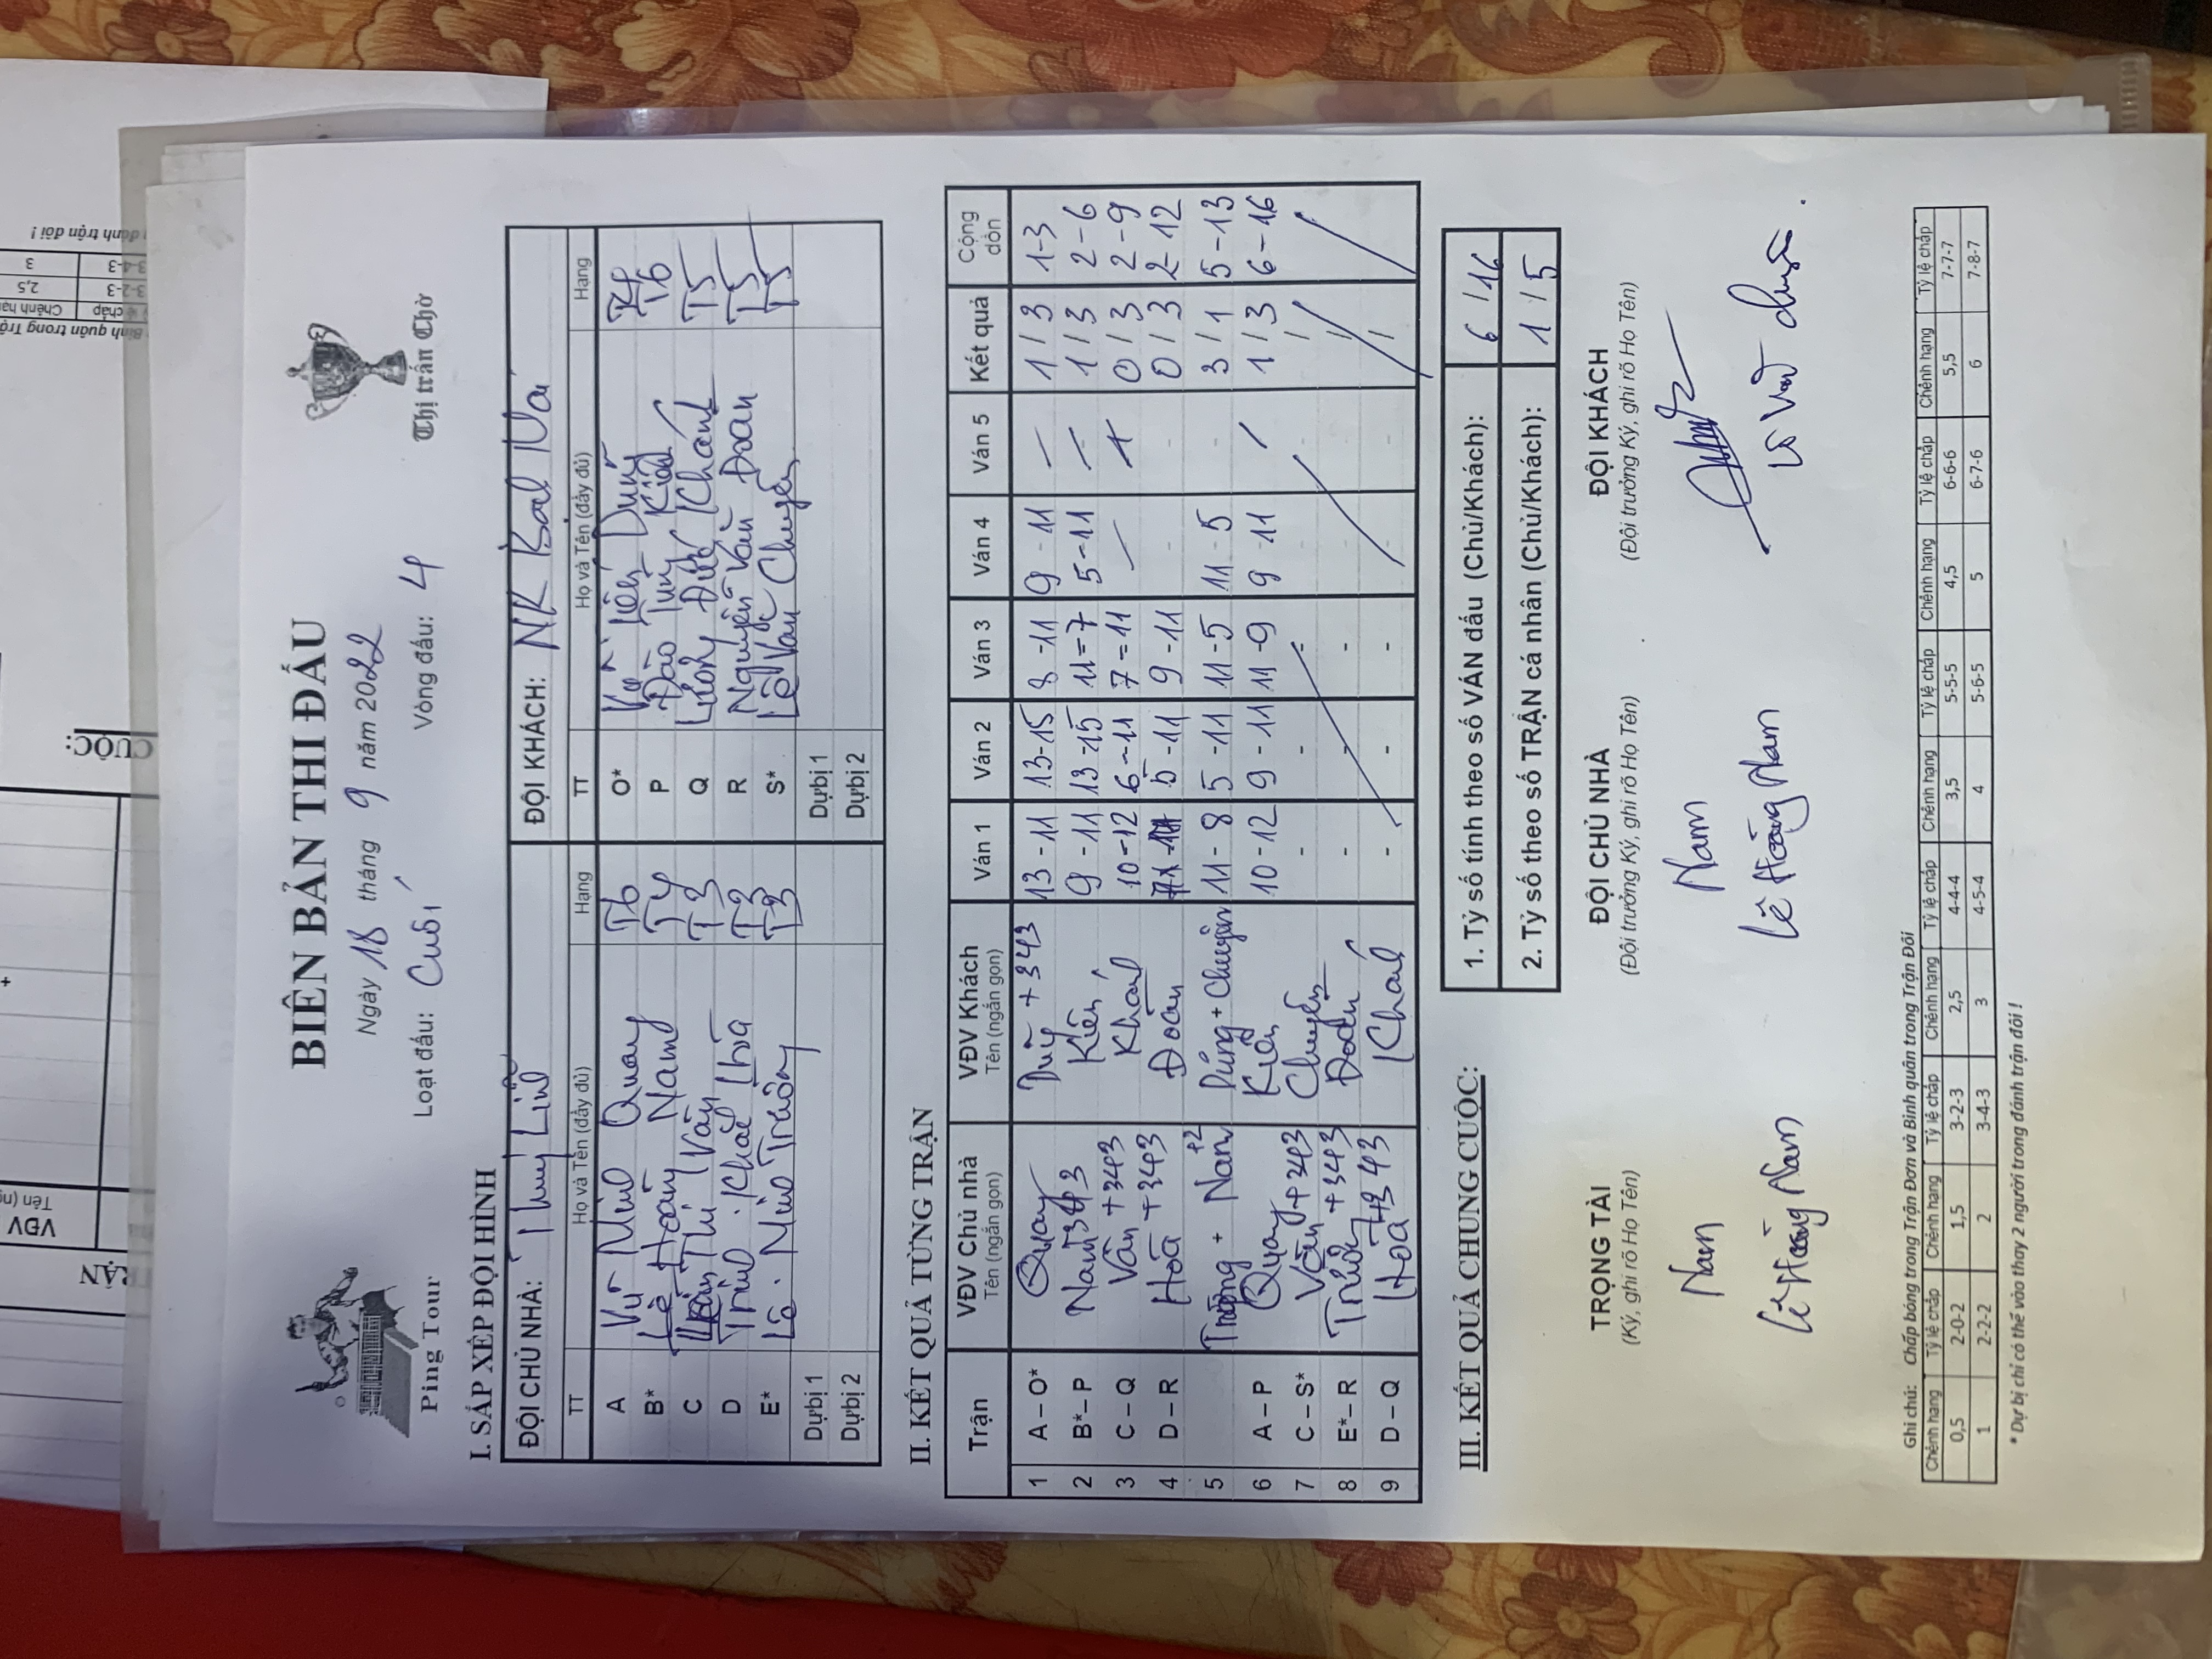 BIÊN BẢN THI ĐẤU
Ngày 18 tháng 9 năm 2022
Loạt đấu: Cuối Vòng đấu: 4
Ping Tour
Thị trấn Chờ
I. SẮP XẾP ĐỘI HÌNH
ĐỘI CHỦ NHÀ: Thuỳ Linh ĐỘI KHÁCH: NK
TT Họ và Tên (đầy đủ) Hạng TT Họ và Tên (đầy đủ) Hạng
A Vũ Minh Quay T6 O* Tiến Dũng T4
B* Lê Hoàng Nam T4 P Đào Tùng Kiên T6
C Trần Thị Vân T3 Q Đức Khánh T5
D Trịnh Khắc Hòa T3 R Nguyễn Văn Đoàn T5
E* Lê Minh Trường T3 S* Lê Văn Chuyên T5
Dự bị 1 Dự bị 1
Dự bị 2 Dự bị 2
II. KẾT QUẢ TỪNG TRẬN
Trận VĐV Chủ nhà Tên (ngắn gọn) VĐV Khách Tên (ngắn gọn) Ván 1 Ván 2 Ván 3 Ván 4 Ván 5 Kết quả Cộng dồn
1 A – O* Quay +343 13 - 11 13 - 15 8 - 11 9 - 11 1 / 3 1-3
2 B* – P Nam 343 Kiên 9 - 11 13 - 15 11 = 7 5 - 11 1 / 3 2 - 6
3 C – Q Vân +343 Khánh 10 - 12 6 - 11 7 = 11 0 / 3 2 - 9
4 D – R Hoà +343 Đoàn 5 - 11 9 - 11 0 / 3 2 - 12
5 Trường + Nam +2 Dũng + Chuyên 11 - 8 5 - 11 11 - 5 11 - 5 3 / 1 5 - 13
6 A – P Quay +343 Kiên 10 - 12 9 - 11 11 - 9 9 - 11 1 / 3 6 - 16
7 C – S* Vân +343 Chuyên - - - - - /
8 E* – R Trường +343 Đoàn - - - - - /
9 D – Q Hoà +343 Khánh - - - - - /
III. KẾT QUẢ CHUNG CUỘC:
1. Tỷ số tính theo số VÁN đấu (Chủ/Khách): 6 / 16
2. Tỷ số theo số TRẬN cá nhân (Chủ/Khách): 1 / 5
TRỌNG TÀI ĐỘI CHỦ NHÀ ĐỘI KHÁCH
(Ký, ghi rõ Họ Tên) (Đội trưởng Ký, ghi rõ Họ Tên) (Đội trưởng Ký, ghi rõ Họ Tên)
Nam Nam
Lê Hoàng Nam Lê Hoàng Nam
Ghi chú: Chấp bóng trong Trận Đơn và Bình quân trong Trận Đôi
Chênh hạng Tỷ lệ chấp Chênh hạng Tỷ lệ chấp Chênh hạng Tỷ lệ chấp Chênh hạng Tỷ lệ chấp Chênh hạng Tỷ lệ chấp Chênh hạng Tỷ lệ chấp
0,5 2-0-2 1,5 3-2-3 2,5 4-4-4 3,5 5-5-5 4,5 6-6-6 5,5 7-7-7
1 2-2-2 2 3-4-3 3 4-5-4 4 5-6-5 5 6-7-6 6 7-8-7
* Dự bị chỉ có thể vào thay 2 người trong đánh trận đôi !
CUỘC:
VĐV